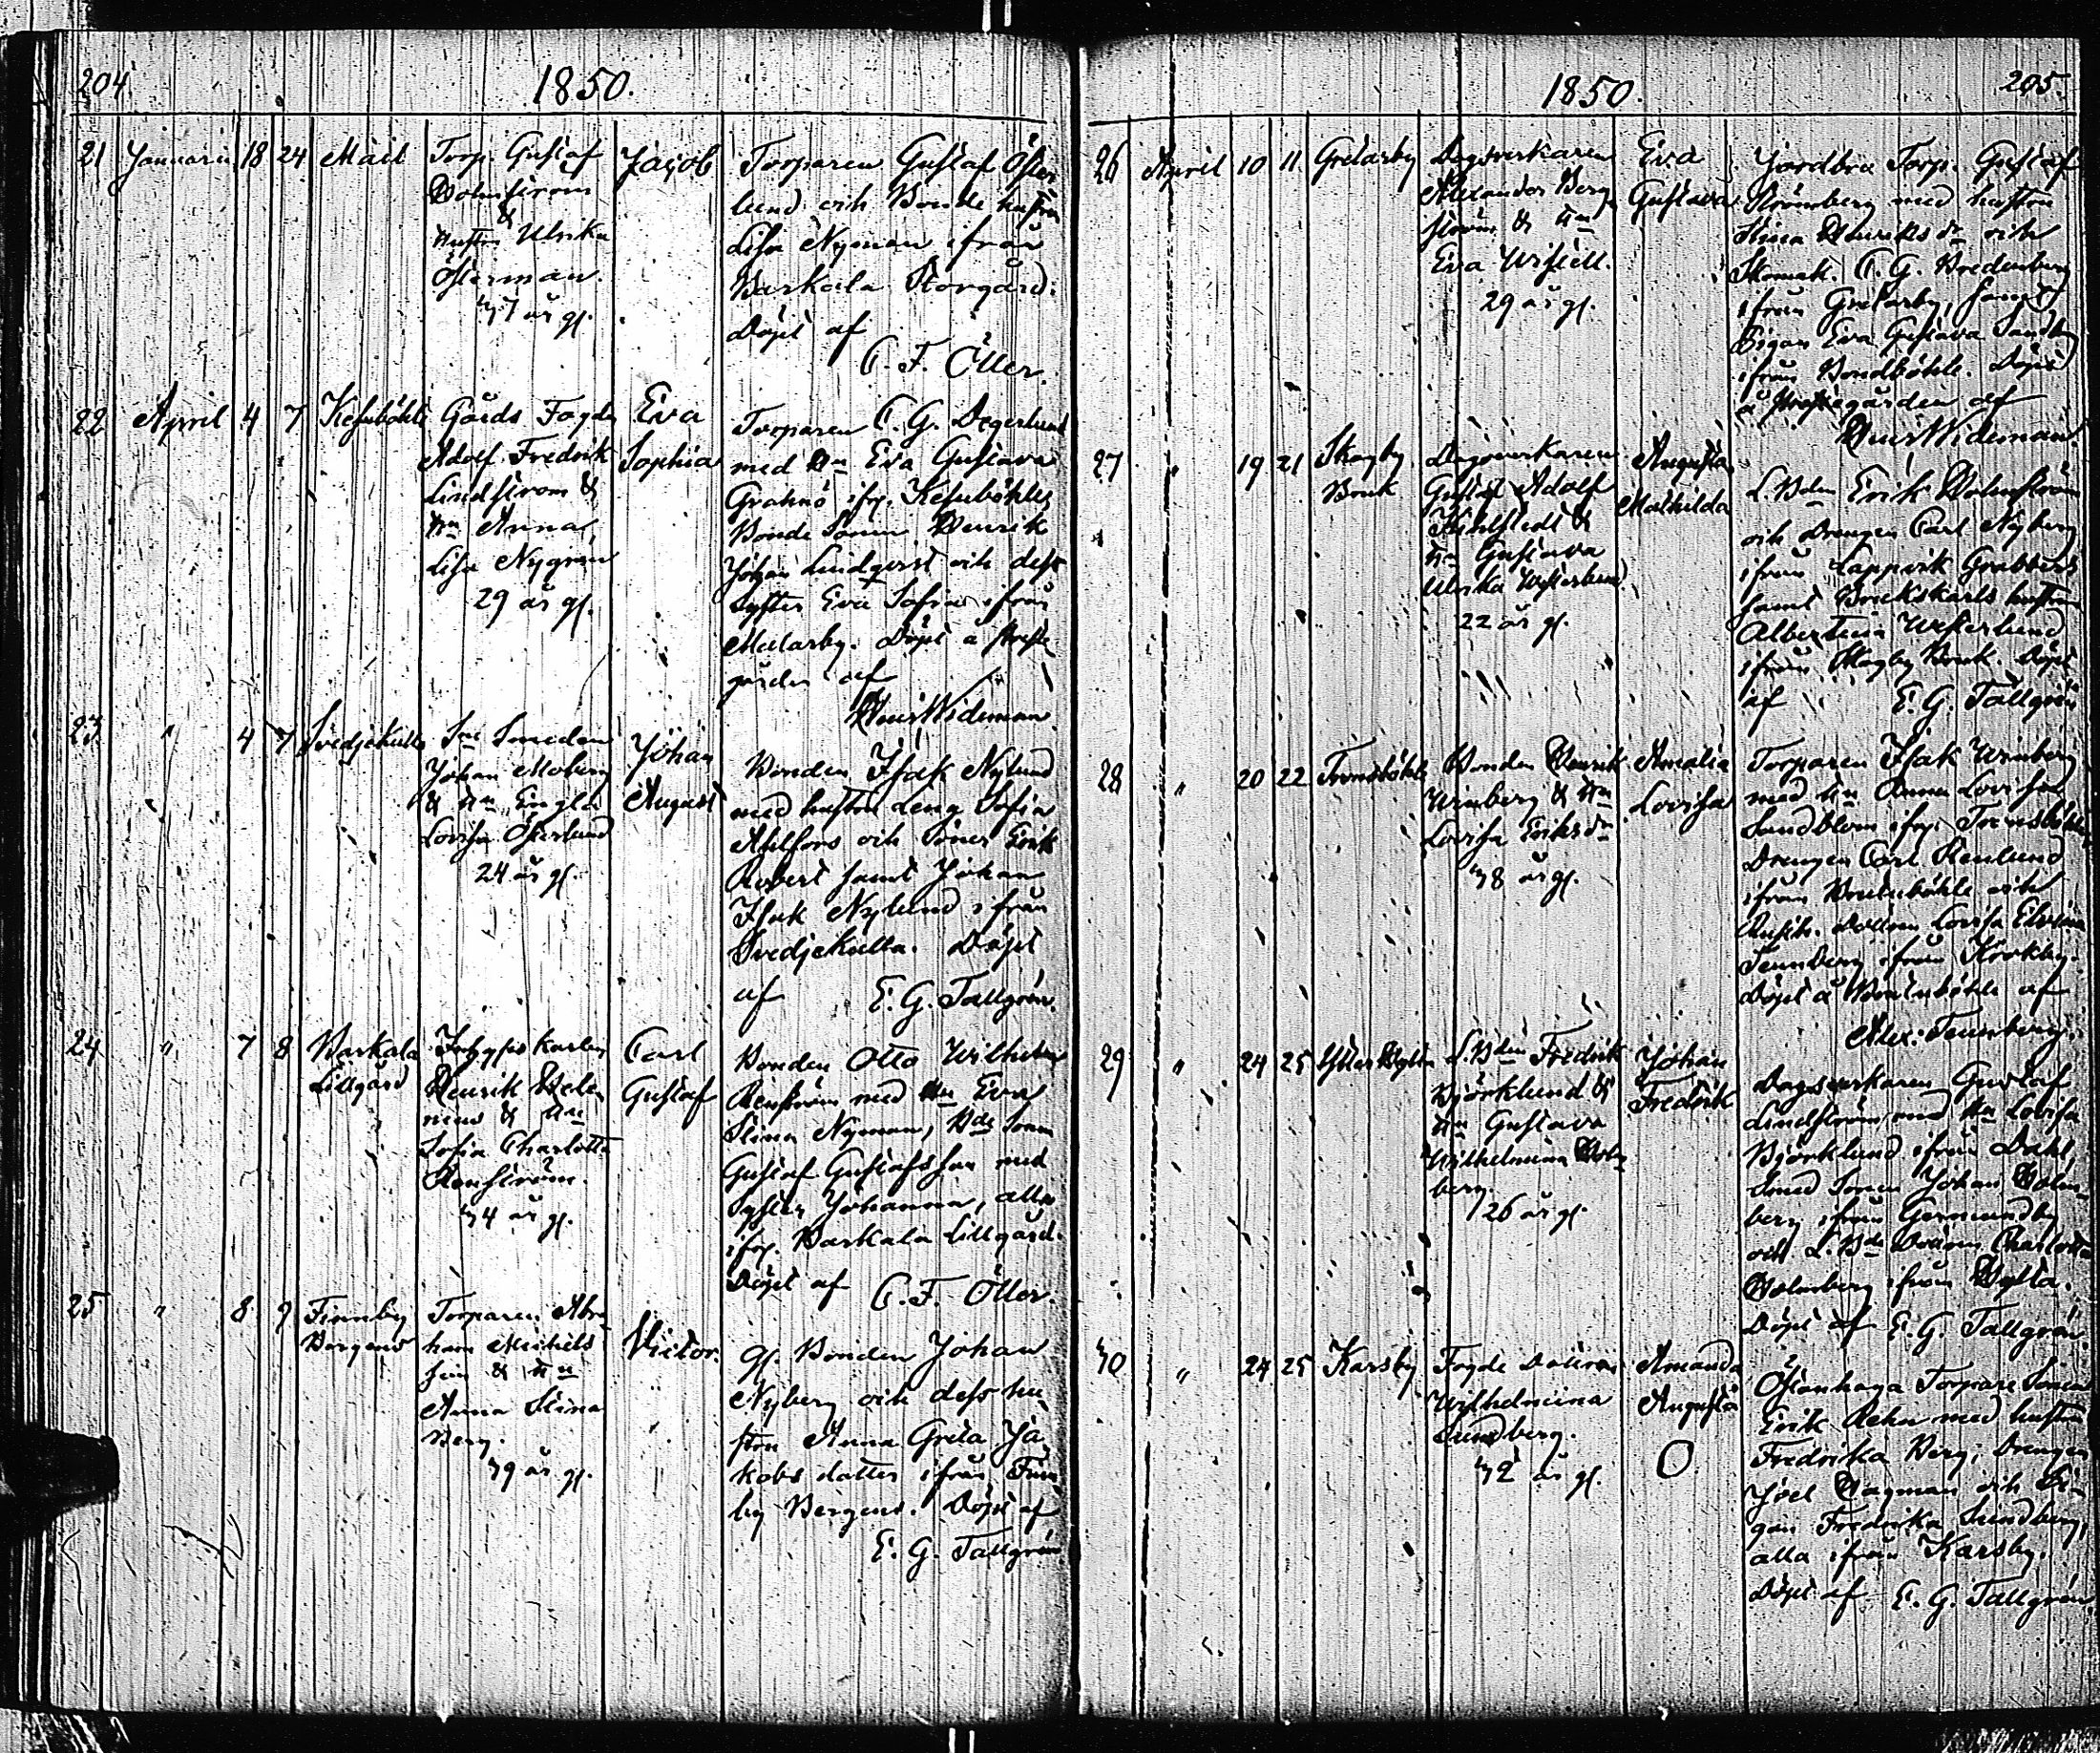 204
1850.
21 Januari 18 24 Måil
Torp. Gustaf
Holmström
&
hustru Ulrika
Österman.
37 år gl.
Jacob
Torparen Gustaf Öster
lund och Bonde hustru
Lisa Nyman ifrån
Backala Storgård.
Döpt af
C. F. Öller.
22 April 4 7 Kesubôhle
Gårds Fogden
Adolf Fredrik
Lindström &
hn Anna
Lisa Nygrén
29 år gl.
Eva
Sophia
Torparen C. G. Degerlund
med hn Eva Gustava
Granö ifr. Kesubôhle,
Bonde Sonen Henrik
Johan Lindqvist och dess
syster Eva Sofia ifrån
Malarby. Döpt å Preste
gården af
Henr Wideman.
23 " 4 7 Svedjekulla
Sne Smeden
Johan Moberg
& hn Engla
Lovisa Österlund
24 år gl.
Johan
August
Bonden Isak Nylund
med hustru Lena Sofia
Ahlfors och Söner Erik
Robert samt Johan
Isak Nylund ifrån
Svedjekulla. Döpt
af E. G. Tallgrén.
24 " 7 8 Backala
Lillgård
Inhyses Karlen
Henrik Hele
nius & hn
Sofia Charlotta
Renström.
34 år gl.
Carl
Gustaf
Bonden Otto Wilhelm
Renström med hn Eva
Stina Nyman, Bde Sonen
Gustaf Gustafsson med
Syster Johanna, alla
ifr. Backala Lillgård.
Döpt af C. F. Öller.
25 " 8 9 Finnby
Bergens
Torparen Abra
ham Michels
son & hn
Anna Stina
Berg.
39 år gl.
Victor.
Gl. Bonden Johan
Nyberg och dess hu
stru Anna Greta Ja
kobs dotter ifrån Finn
by Bergens. Döpt af
E. G. Tallgrén
1850.
205.
26 April 10 11 Grelarby
Dagsverkaren
Alexander Berg
ström & hn
Eva Wistell.
29 år gl.
Eva
Gustava
Jordbra Torp. Gustaf
Strömberg med hustru
Stina Henriksdr och
Skomak. C. G. Bredenberg
ifrån Grelarby, samt
Pigan Eva Gustava Sandberg
ifrån Bondbôhle. Döpt
å Prestegården af
Henr Wideman.
27 " 19 21 Skogby
Bruk
Dagsverkaren
Gustaf Adolf
&
hn Gustava
Ulrika Westerlund
22 år gl.
Augusta
Mathilda
L. Bden Erik Holmström
och Drengen Carl Nyberg
ifrån Lappvik Grabbens
samt Brukskarls hustru
Albertina Westerlund
ifrån Skogby Bruk. Döpt
af E. G. Tallgrén
28 " 20 22 Trensbôhle
Bonden Henrik
Winberg & hn
Lovisa Eriksdr
38 år gl.
Amalia
Lovisa
Torparen Isak Winberg
med hn Anna Lovisa
Sandblom ifr. Trensbôhle,
Drengen Carl Renlund
ifrån bôhle och
Rusth. Dottren Lovisa Elvira
Tennberg ifrån Krokby.
Döpt å bôhle af
Alex. Tennberg.
29 " 24 25
L. Bden Fredrik
Björklund &
hn Gustava
Wilhelmina Holm
berg.
26 år gl.
Johan
Fredrik
Dagsverkaren Gustaf
Lindström med hn Lovisa
Björklund ifrån Dahl,
Smed Sonen Johan Holm
berg ifrån Germundby
och L. Bde Dottren Charlotta
Holmberg ifrån Hylta.
Döpt af E. G. Tallgrén
30 " 24 25 Karsby
Fogde Dottren
Wilhelmina
Lundberg.
32 år gl.
Amanda
Augusta
O
Östanhaga Torpare Sonen
Erik Rehn med hustru
Fredrika Berg, Drengen
Joel Hagman och Pi
gan Fredrika Lundberg,
alla ifrån Karsby.
Döpt af E. G. Tallgrén